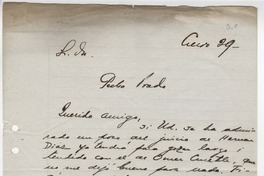 Enero 29-
S. Dn.
Pedro Prado
Querido amigo,
Si Ud. se ha admi
rado un poco del juicio de Hernan
Diaz ya tendrá para gozar largo i
tendido con el de Omer
me dejó bueno para nada.